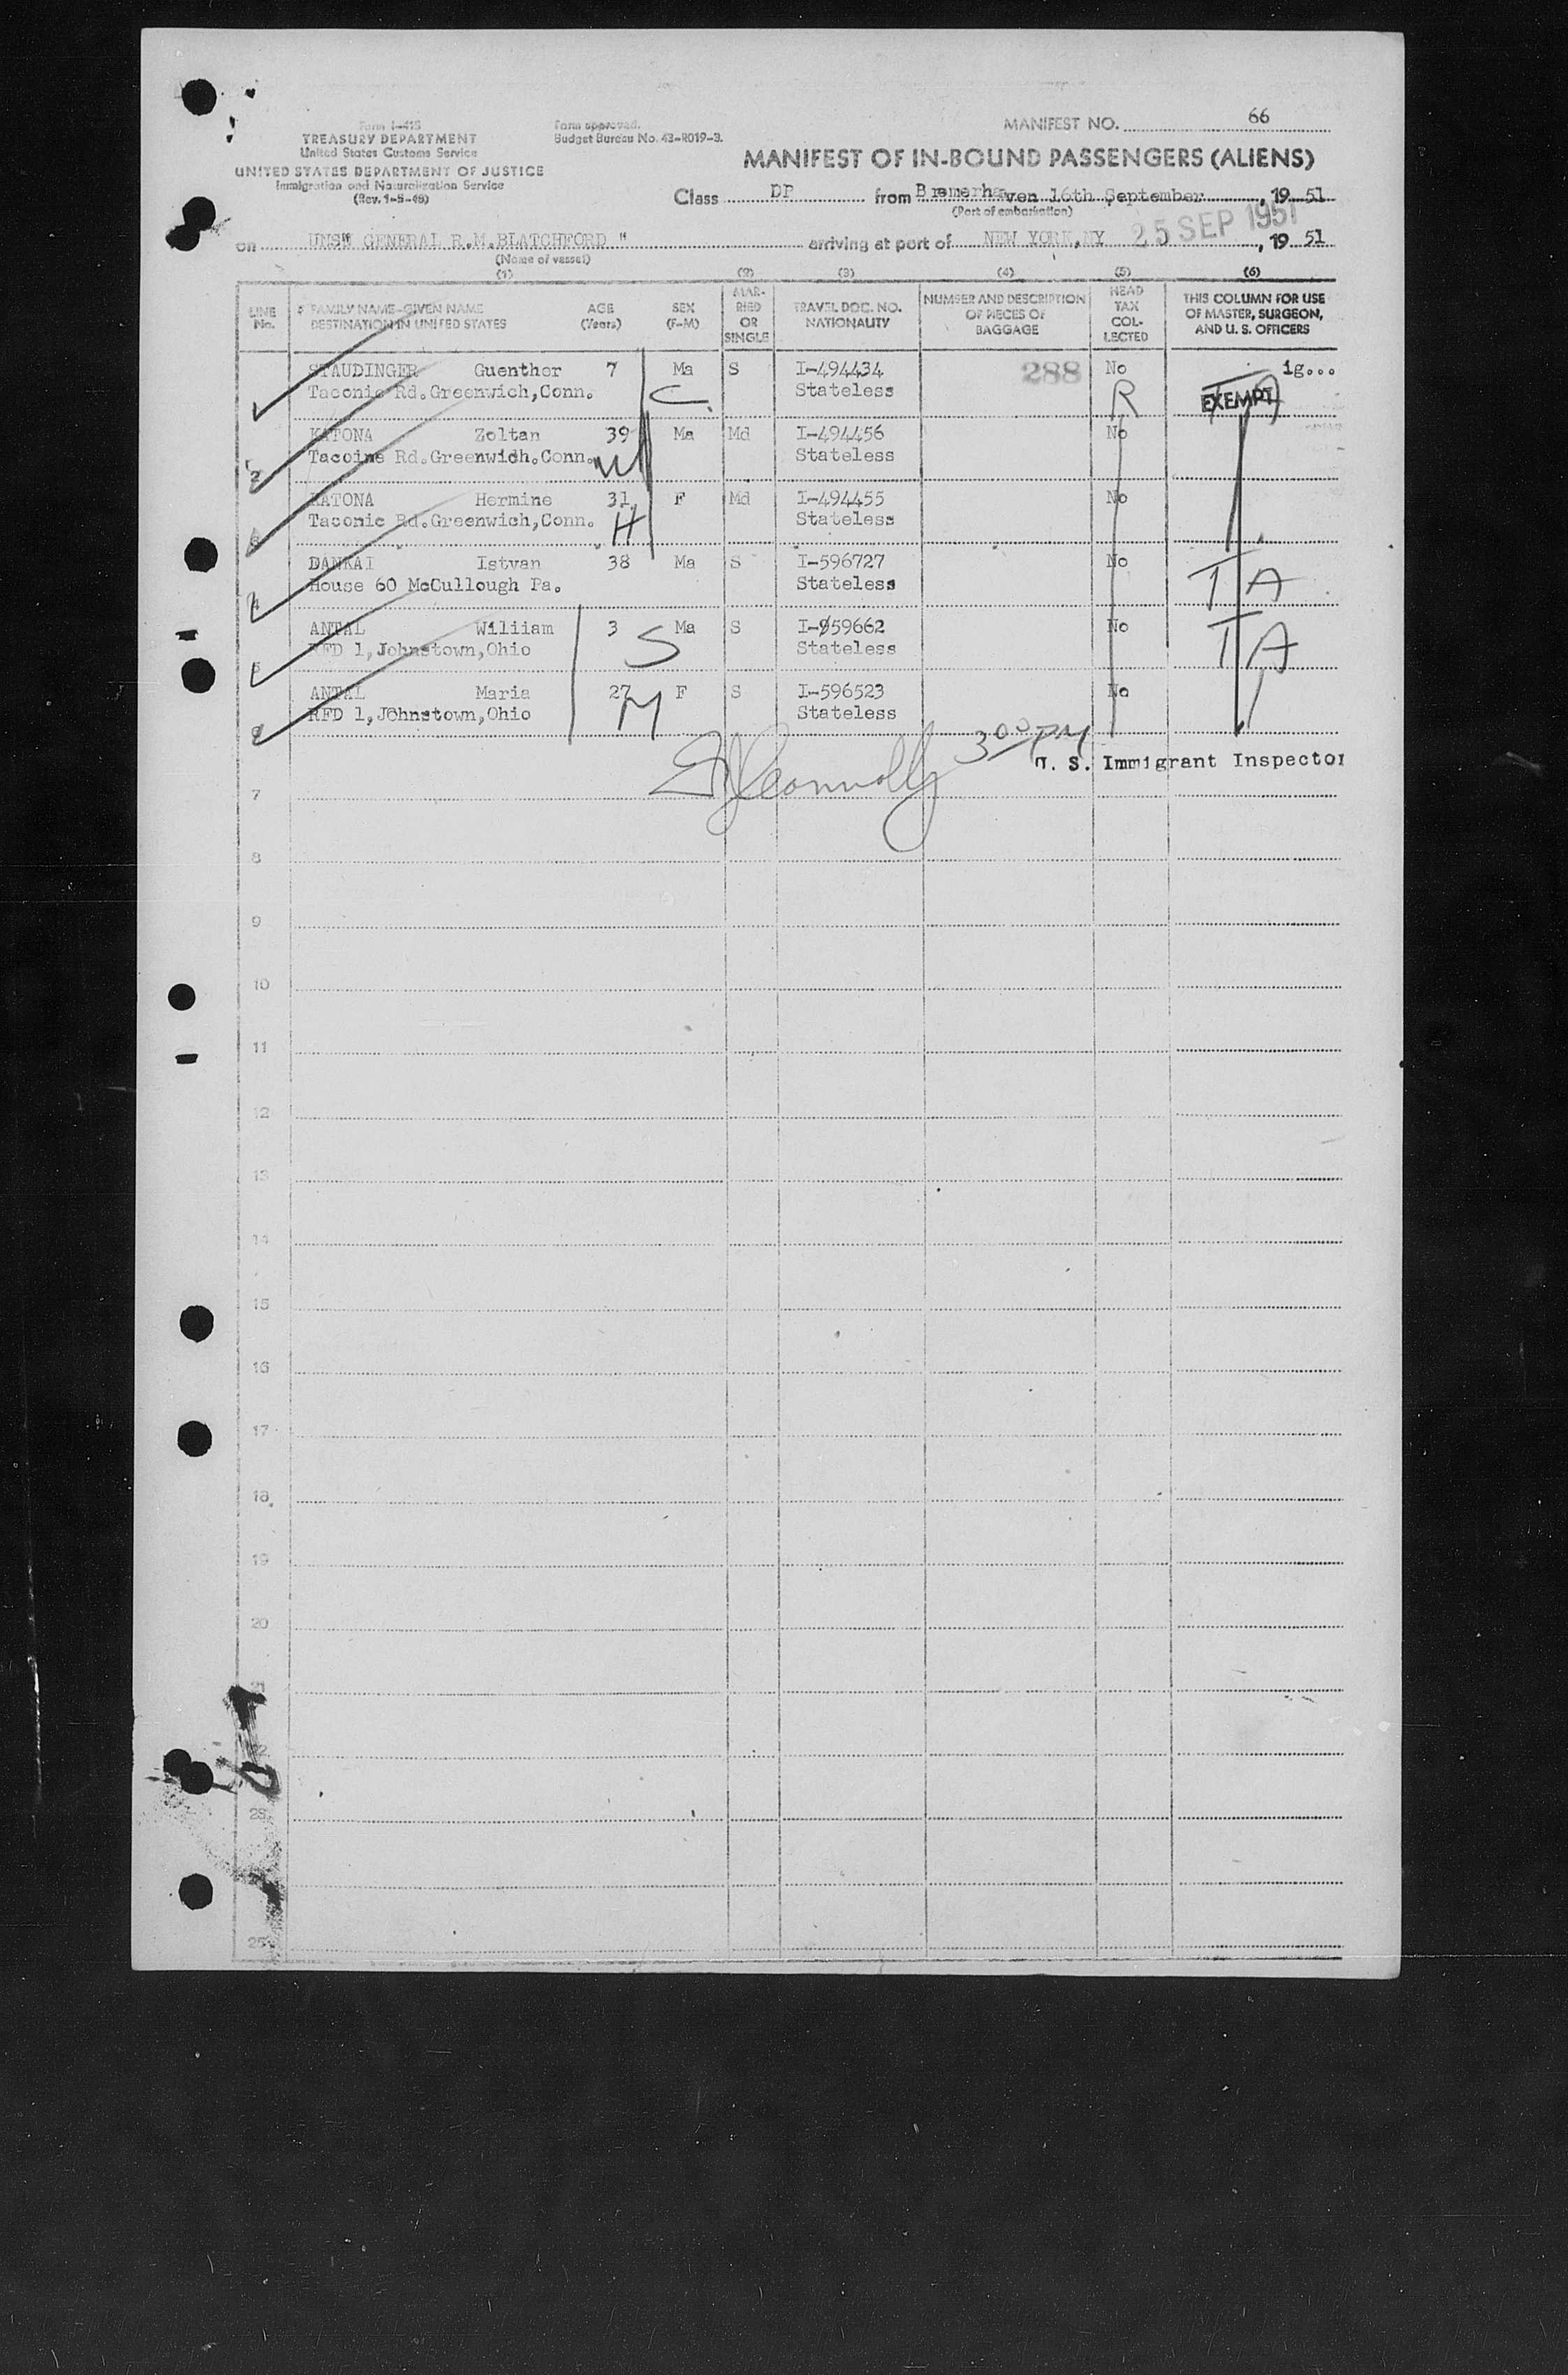 Form I-415
TREASURY DEPARTMENT
United States Customs Service
UNITED STATES DEPARTMENT OF JUSTICE
Immigration and Naturalization Service
(Rev. 1-5-48)
Form approved.
Budget Bureau No. 43-R019-3.
MANIFEST NO. 66
MANIFEST OF IN-BOUND PASSENGERS (ALIENS)
Class DP from Bremerhaven 16th September, 19 51
(Port of embarkation)
25 SEP 1951
on UNS" GENERAL R.M.BLATCHFORD " arriving at port of NEW YORK,NY, 19 51
(Name of vessel)
(1) (2) (3) (4) (5) (6)
LINE No. FAMILY NAME-GIVEN NAME DESTINATION IN UNITED STATES AGE (Years) SEX (F-M) MAR-RIED OR SINGLE TRAVEL DOC. NO. NATIONALITY NUMBER AND DESCRIPTION OF PIECES OF BAGGAGE HEAD TAX COL-LECTED THIS COLUMN FOR USE OF MASTER, SURGEON, AND U. S. OFFICERS
STAUDINGER Guenther 7 Ma S I-494434 288 No ig...
Taconic Rd.Greenwich,Conn. C Stateless R EXEMPT
2 KATONA Zoltan 39 Ma Md I-494456 No
Tacoins Rd.Greenwidh.Conn. W Stateless
KATONA Hermine 31 F Md I-494455 No
Taconic Rd.Greenwich,Conn. H Stateless
4 DANKAI Istvan 38 Ma S I-596727 No
House 60 McCullough Pa. Stateless T A
ANTAL Wiliiam 3 Ma S I-959662 No
RFD 1,Johnstown,Ohio S Stateless T A
ANTAL Maria 27 F S I-596523 No
RFD 1,Johnstown,Ohio M Stateless
Connolly 3 00 PM
U. S. Immigrant Inspector
7
8
9
10
11
12
13
14
15
16
17
18
19
20
25